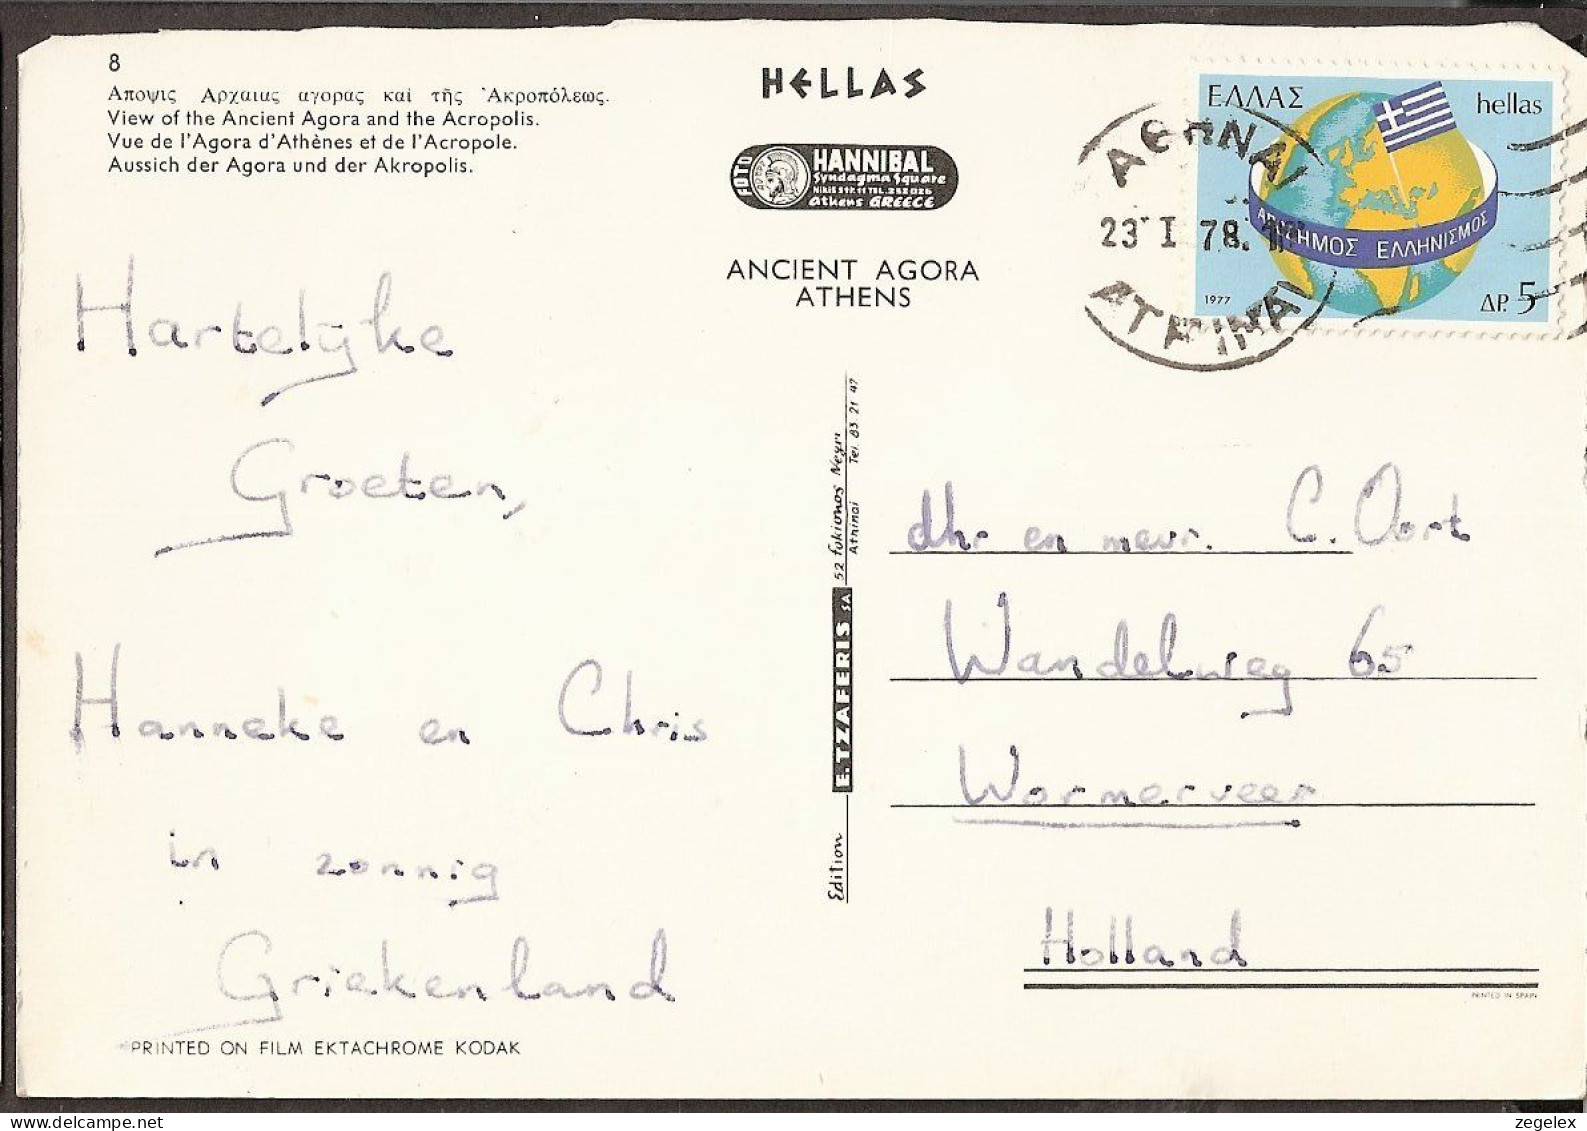 8
Αποψις Αρχαιας αγορας καί τῆς Ἀκροπόλεως.
View of the Ancient Agora and the Acropolis.
Vue de l'Agora d'Athènes et de l'Acropole.
Aussich der Agora und der Akropolis.
HELLAS
FOTO
HANNIBAL
Syndagma Square
Athens GREECE
ANCIENT AGORA
ATHENS
ΕΛΛΑΣ hellas
ΑΠΟΔΗΜΟΣ ΕΛΛΗΝΙΣΜΟΣ
1977 ΔΡ. 5
ΑΘΗΝΑΙ
23 I 78.
ATHINAI
Hartelijke
Groeten,
Hanneke en Chris
in zonnig
Griekenland
PRINTED ON FILM EKTACHROME KODAK
Edition E.TZAFERIS SA 52 Fokionos Negri
Athinai Tel. 83 21 47
dhr en mevr. C. Oort
Wandelweg 65
Wormerveer
Holland
PRINTED IN SPAIN
zegelex